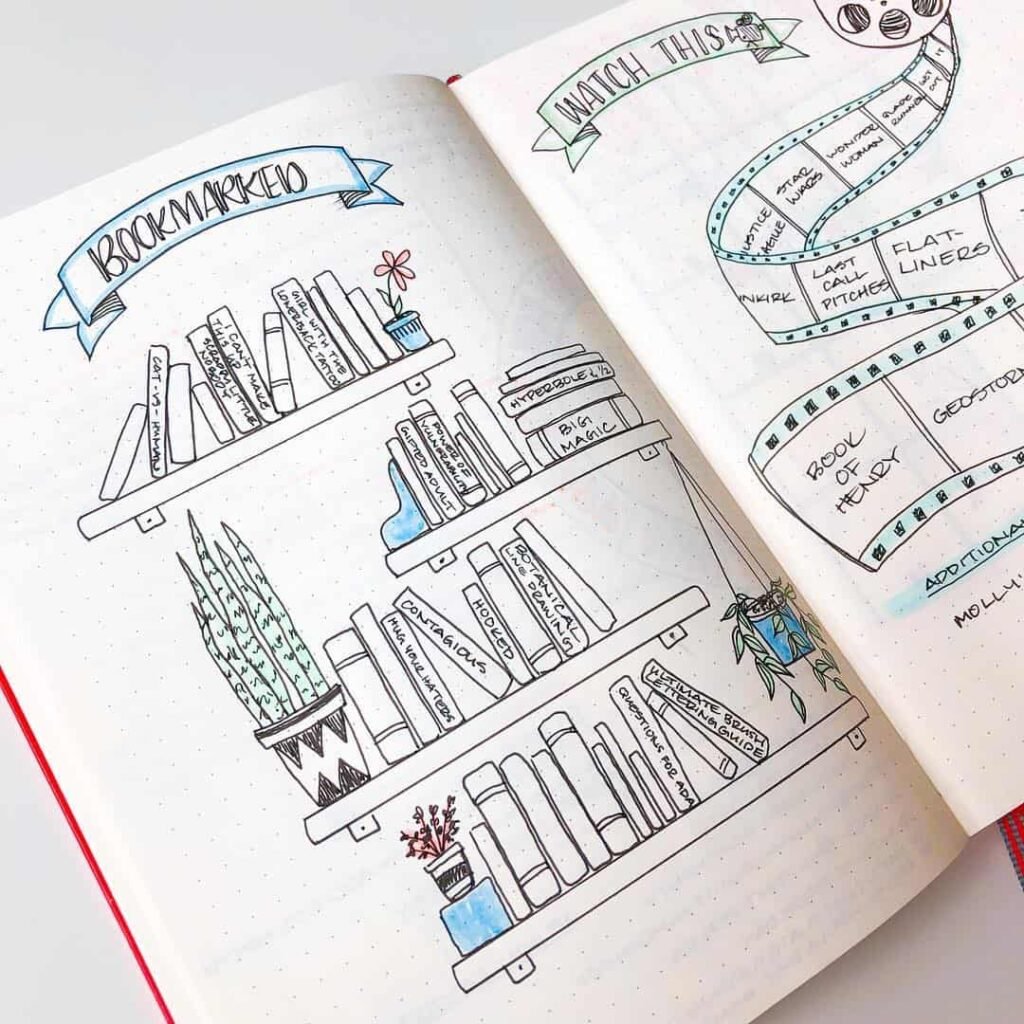 BOOKMARKED
CAT-VS-HUMAN
I CAN'T MAKE
THIS UP
SCRAPPY LITTLE
NOBODY
GIRL WITH THE
LOWER BACK TATTOO
GIFTED ADULT
POWER OF
VULNERABILITY
HYPERBOLE & 1/2
BIG
MAGIC
HUG YOUR HATERS
CONTAGIOUS
HOOKED
BOTANICAL
LINE DRAWING
QUESTIONS FOR ADA
ULTIMATE BRUSH
LETTERING GUIDE
WATCH THIS
IT
GET
OUT
BLADE
RUNNER
WONDER
WOMAN
STAR
WARS
USTICE
NKIRK
LAST
CALL
PITCHES
FLAT-
LINERS
BOOK
OF
HENRY
GEOSTOR
ADDITIONA
MOLLY'